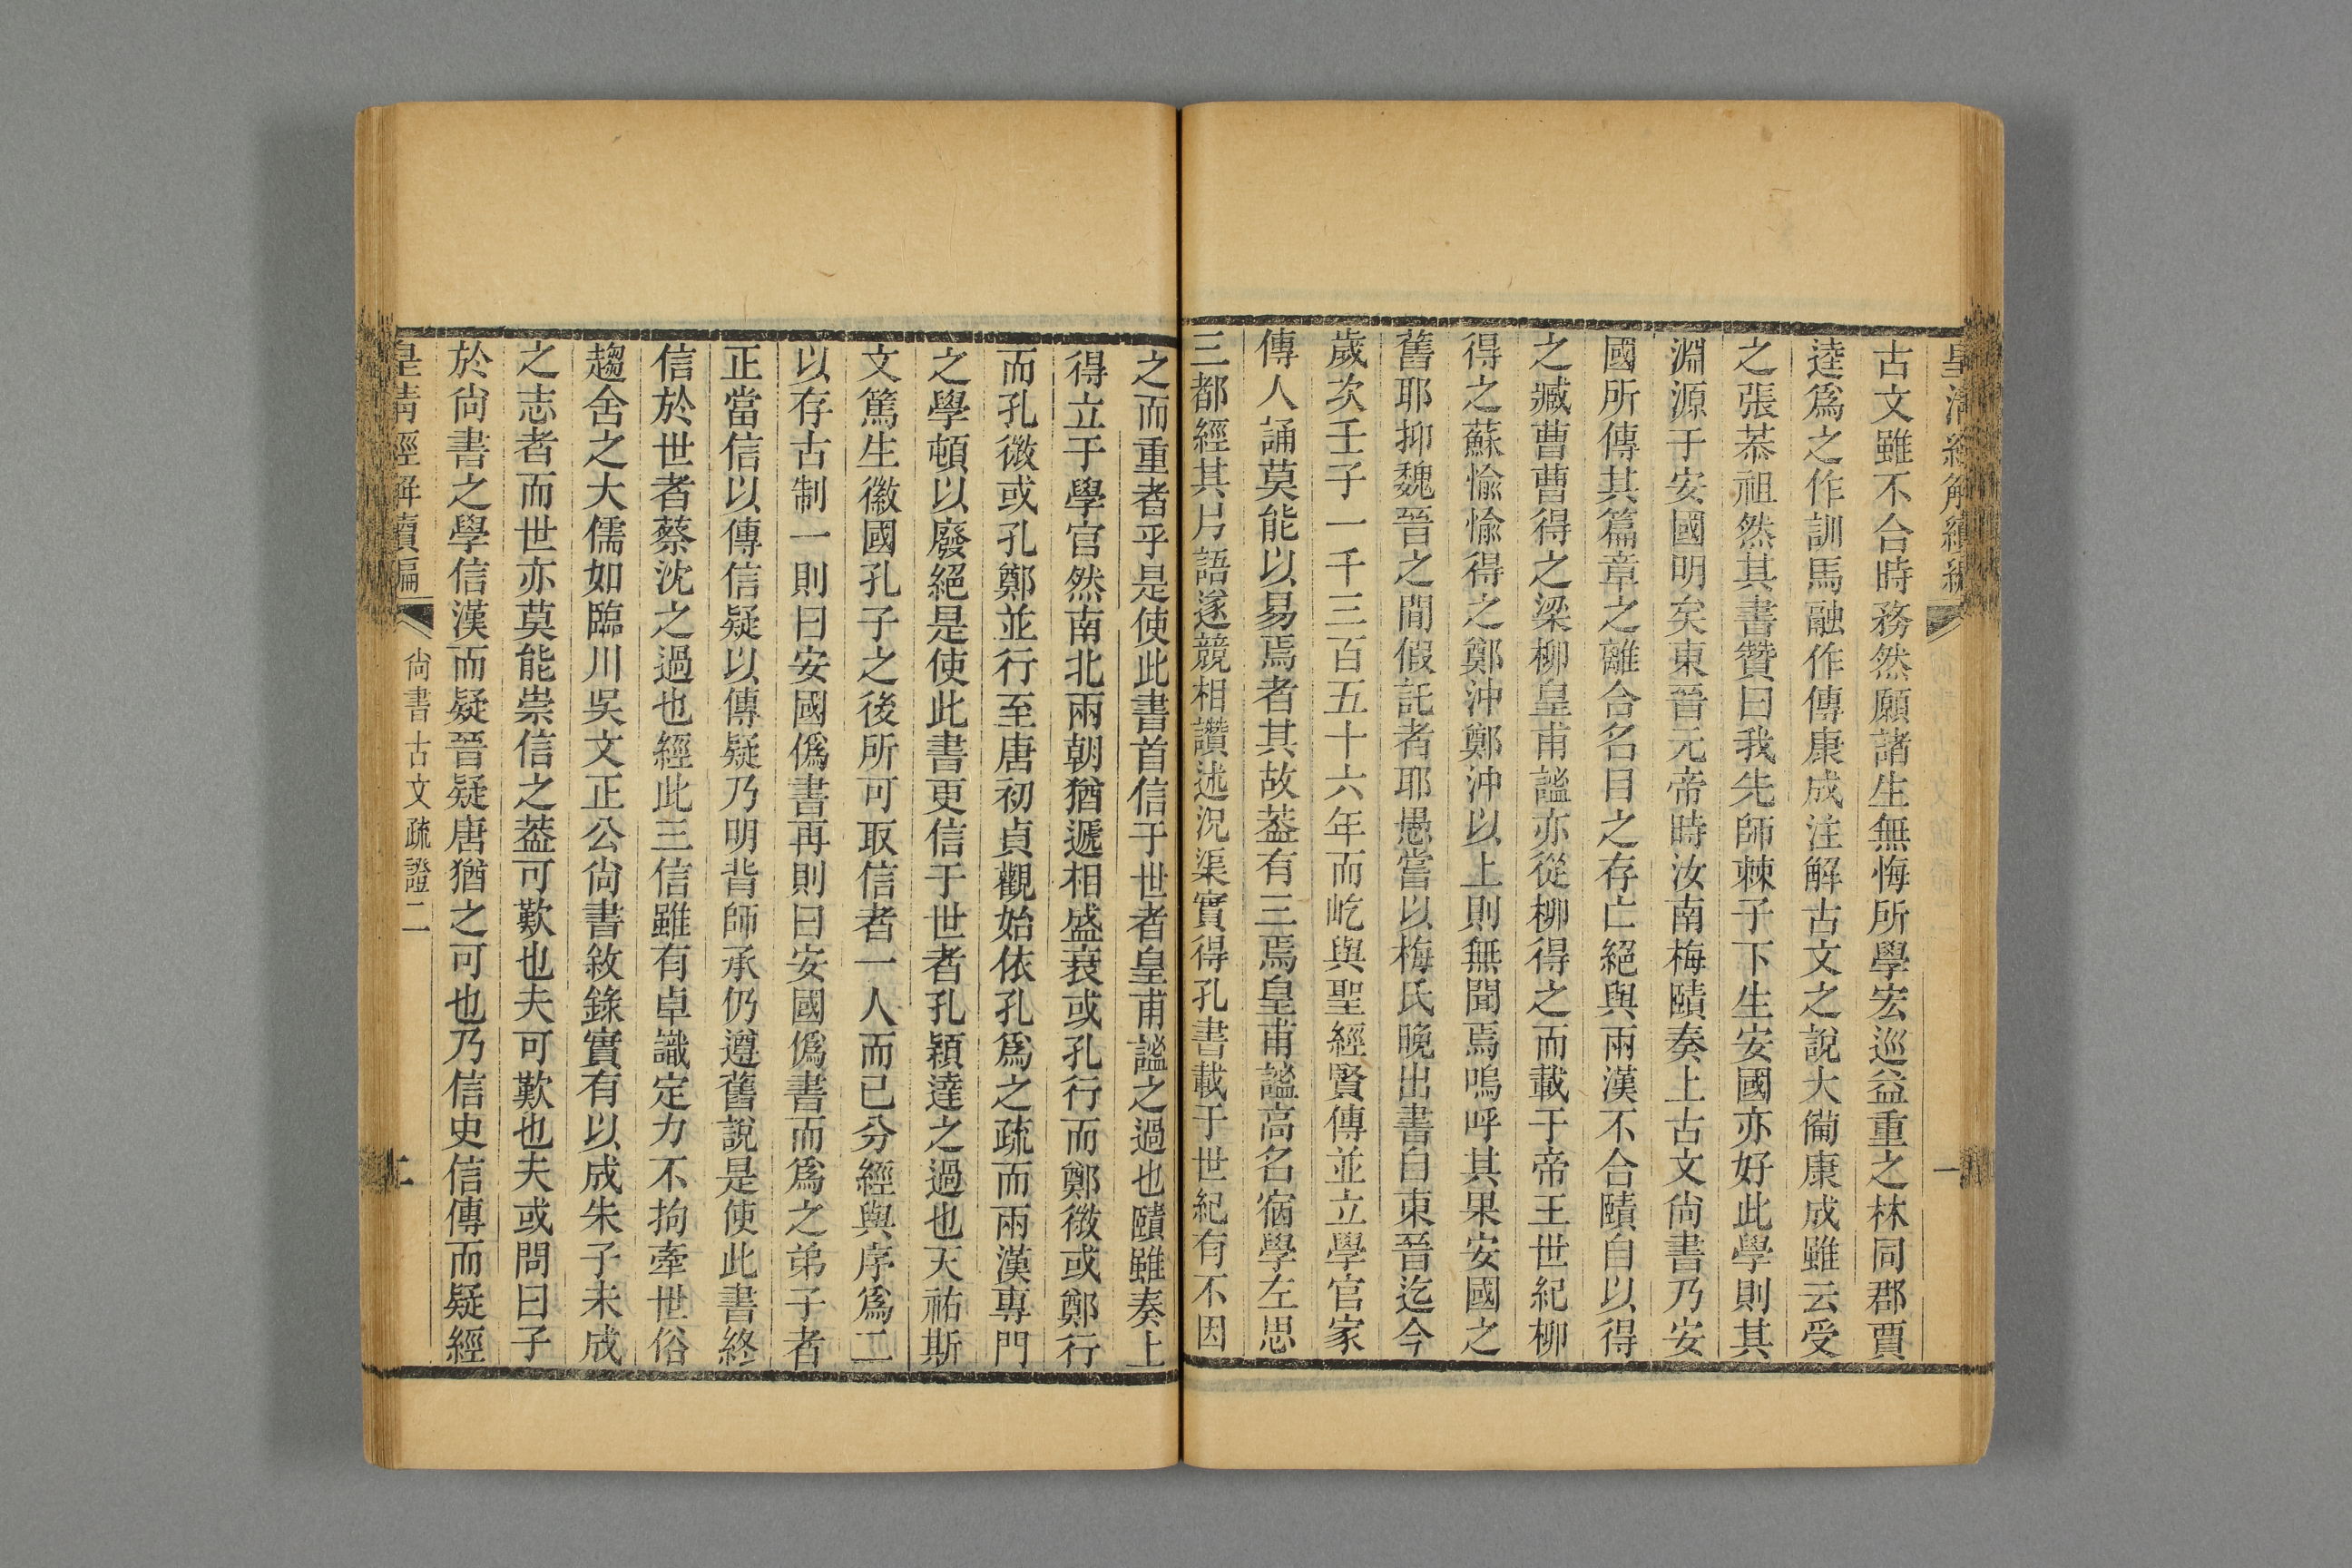 皇清經解續編
一
古文雖不合時務然願諸生無悔所學宏巡益重之林同郡賈
逵爲之作訓馬融作傳康成注解古文之說大備康成雖云受
之張恭祖然其書贊曰我先師棘子下生安國亦好此學則其
淵源于安國明矣東晉元帝時汝南梅賾奏上古文尚書乃安
國所傳其篇章之離合名目之存亡絕與兩漢不合賾自以得
之臧曹曹得之梁柳皇甫謐亦從柳得之而載于帝王世紀柳
得之蘇愉愉得之鄭沖鄭沖以上則無聞焉嗚呼其果安國之
舊耶抑魏晉之間假託者耶愚嘗以梅氏晚出書自東晉迄今
歲次壬子一千三百五十六年而屹與聖經賢傳並立學官家
傳人誦莫能以易焉者其故葢有三焉皇甫謐高名宿學左思
三都經其片語遂競相讚述況渠實得孔書載于世紀有不因
之而重者乎是使此書首信于世者皇甫謐之過也賾雖奏上
得立于學官然南北兩朝猶遞相盛衰或孔行而鄭微或鄭行
而孔微或孔鄭並行至唐初貞觀始依孔爲之疏而兩漢專門
之學頓以廢絕是使此書更信于世者孔穎達之過也天祐斯
文篤生徽國孔子之後所可取信者一人而已分經與序爲二
以存古制一則曰安國僞書再則曰安國僞書而爲之弟子者
正當信以傳信疑以傳疑乃明背師承仍遵舊說是使此書終
信於世者蔡沈之過也經此三信雖有卓識定力不拘牽世俗
趨舍之大儒如臨川吳文正公尚書敘錄實有以成朱子未成
之志者而世亦莫能崇信之葢可歎也夫可歎也夫或問曰子
於尚書之學信漢而疑晉疑唐猶之可也乃信史信傳而疑經
皇清經解續編
尚書古文疏證二
二